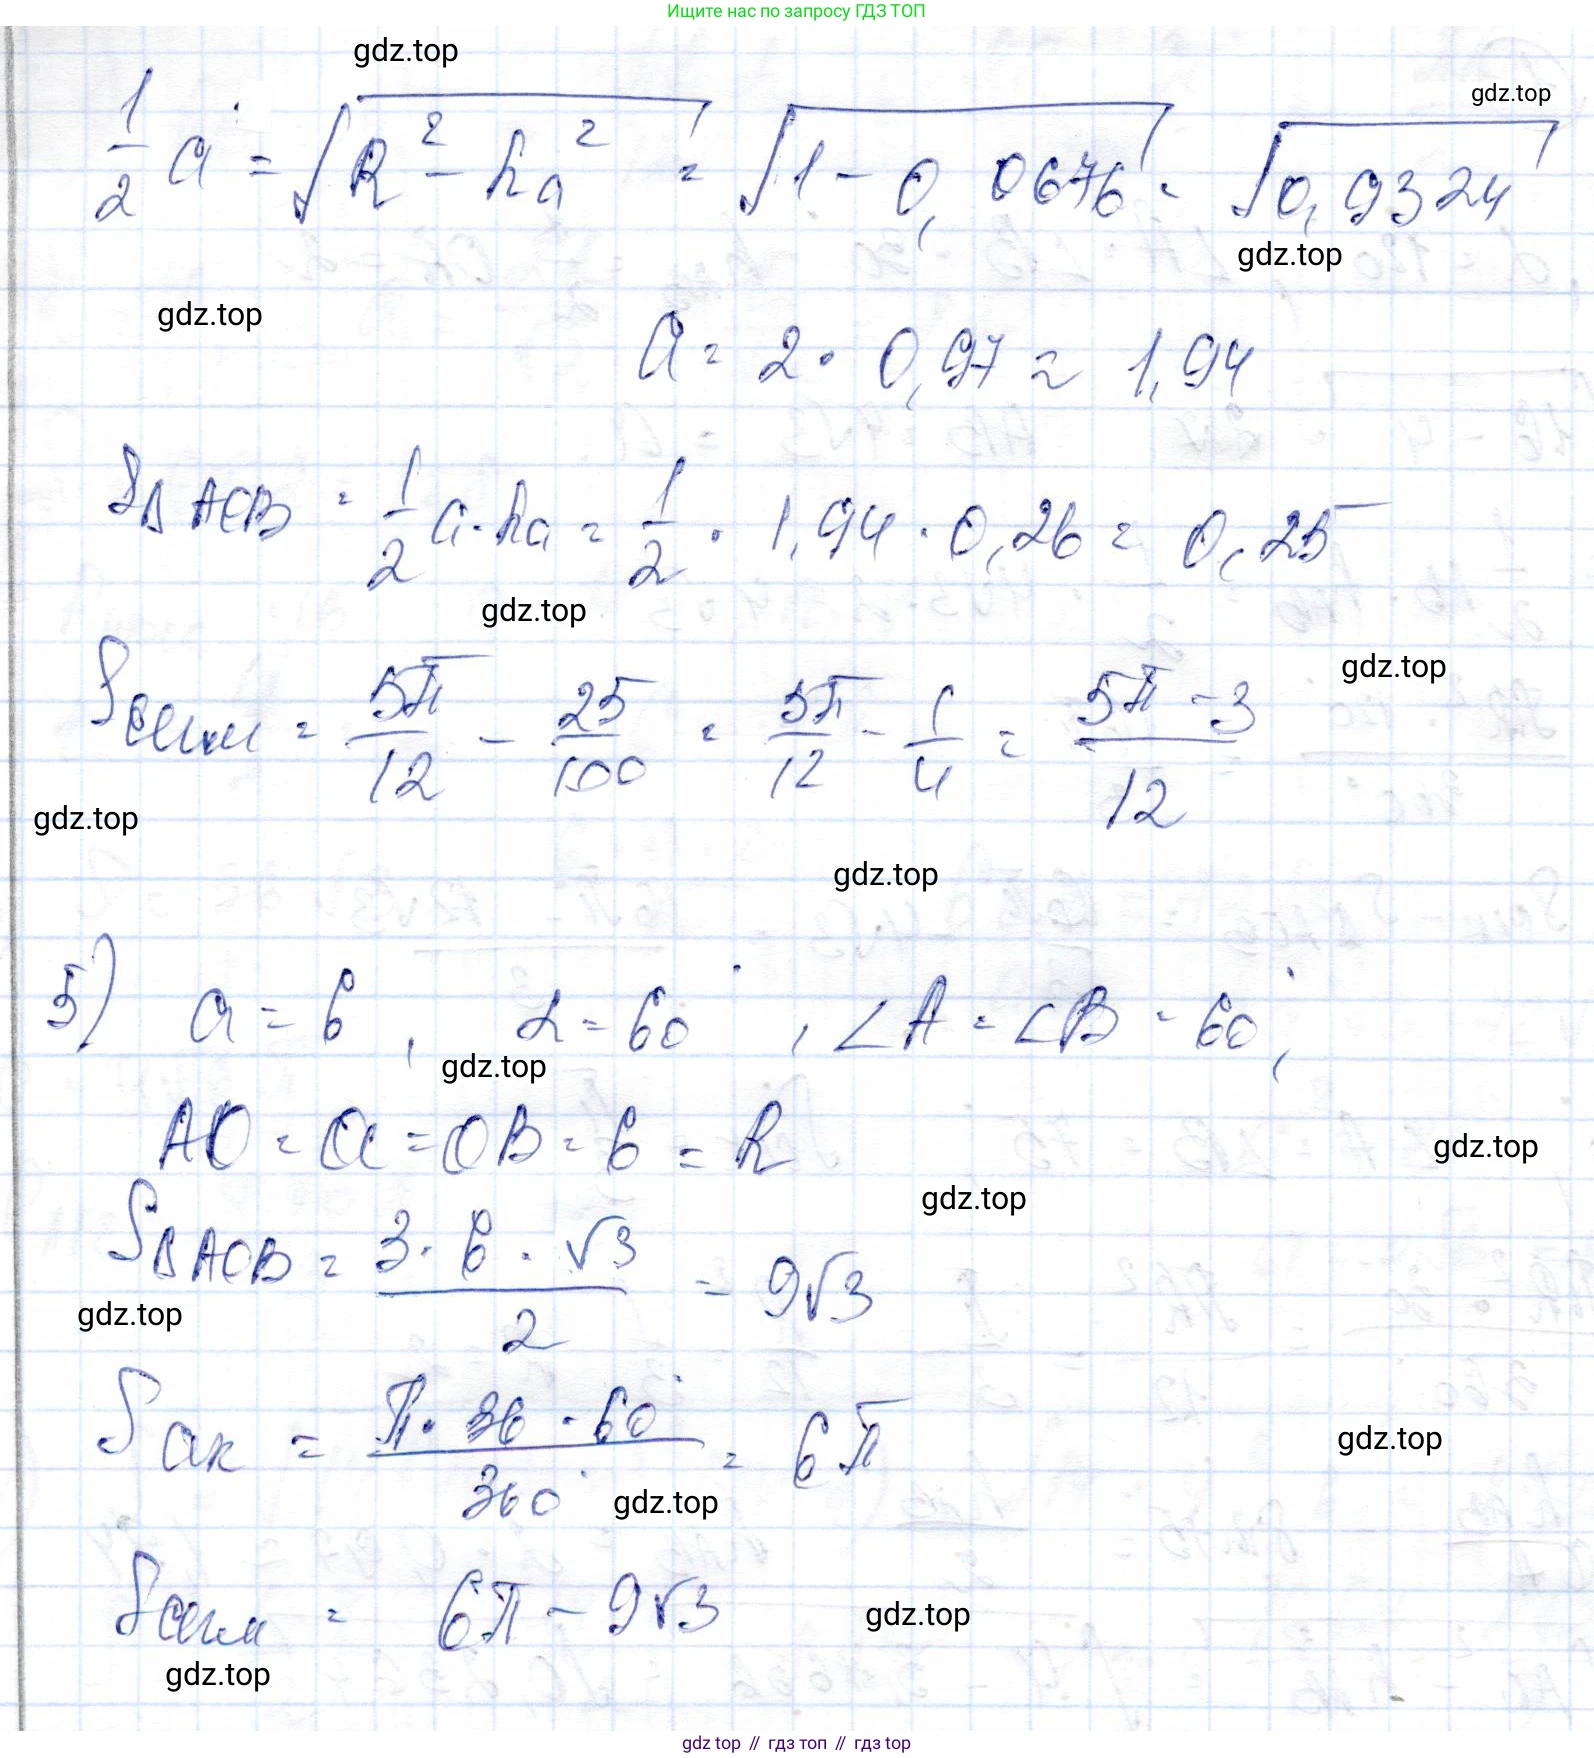 Ищите нас по запросу ГДЗ ТОП
gdz.top
gdz.top
1/2 a = √(R² - hₐ²) = √(1 - 0,0676) = √0,9324
gdz.top
gdz.top
a = 2 · 0,97 ≈ 1,94
S△AOB = 1/2 a · hₐ = 1/2 · 1,94 · 0,26 = 0,25
gdz.top
gdz.top
Sсегм = 5π/12 - 25/100 = 5π/12 - 1/4 = (5π - 3)/12
gdz.top
gdz.top
5) a = 6, α = 60°, ∠A = ∠B = 60°,
gdz.top
AO = a = OB = 6 = R
gdz.top
gdz.top
S△AOB = (3 · 6 · √3)/2 = 9√3
gdz.top
Sак = (π · 36 · 60°)/360° = 6π
gdz.top
gdz.top
Sсегм = 6π - 9√3
gdz.top
gdz.top
gdz top // гдз топ // гдз top